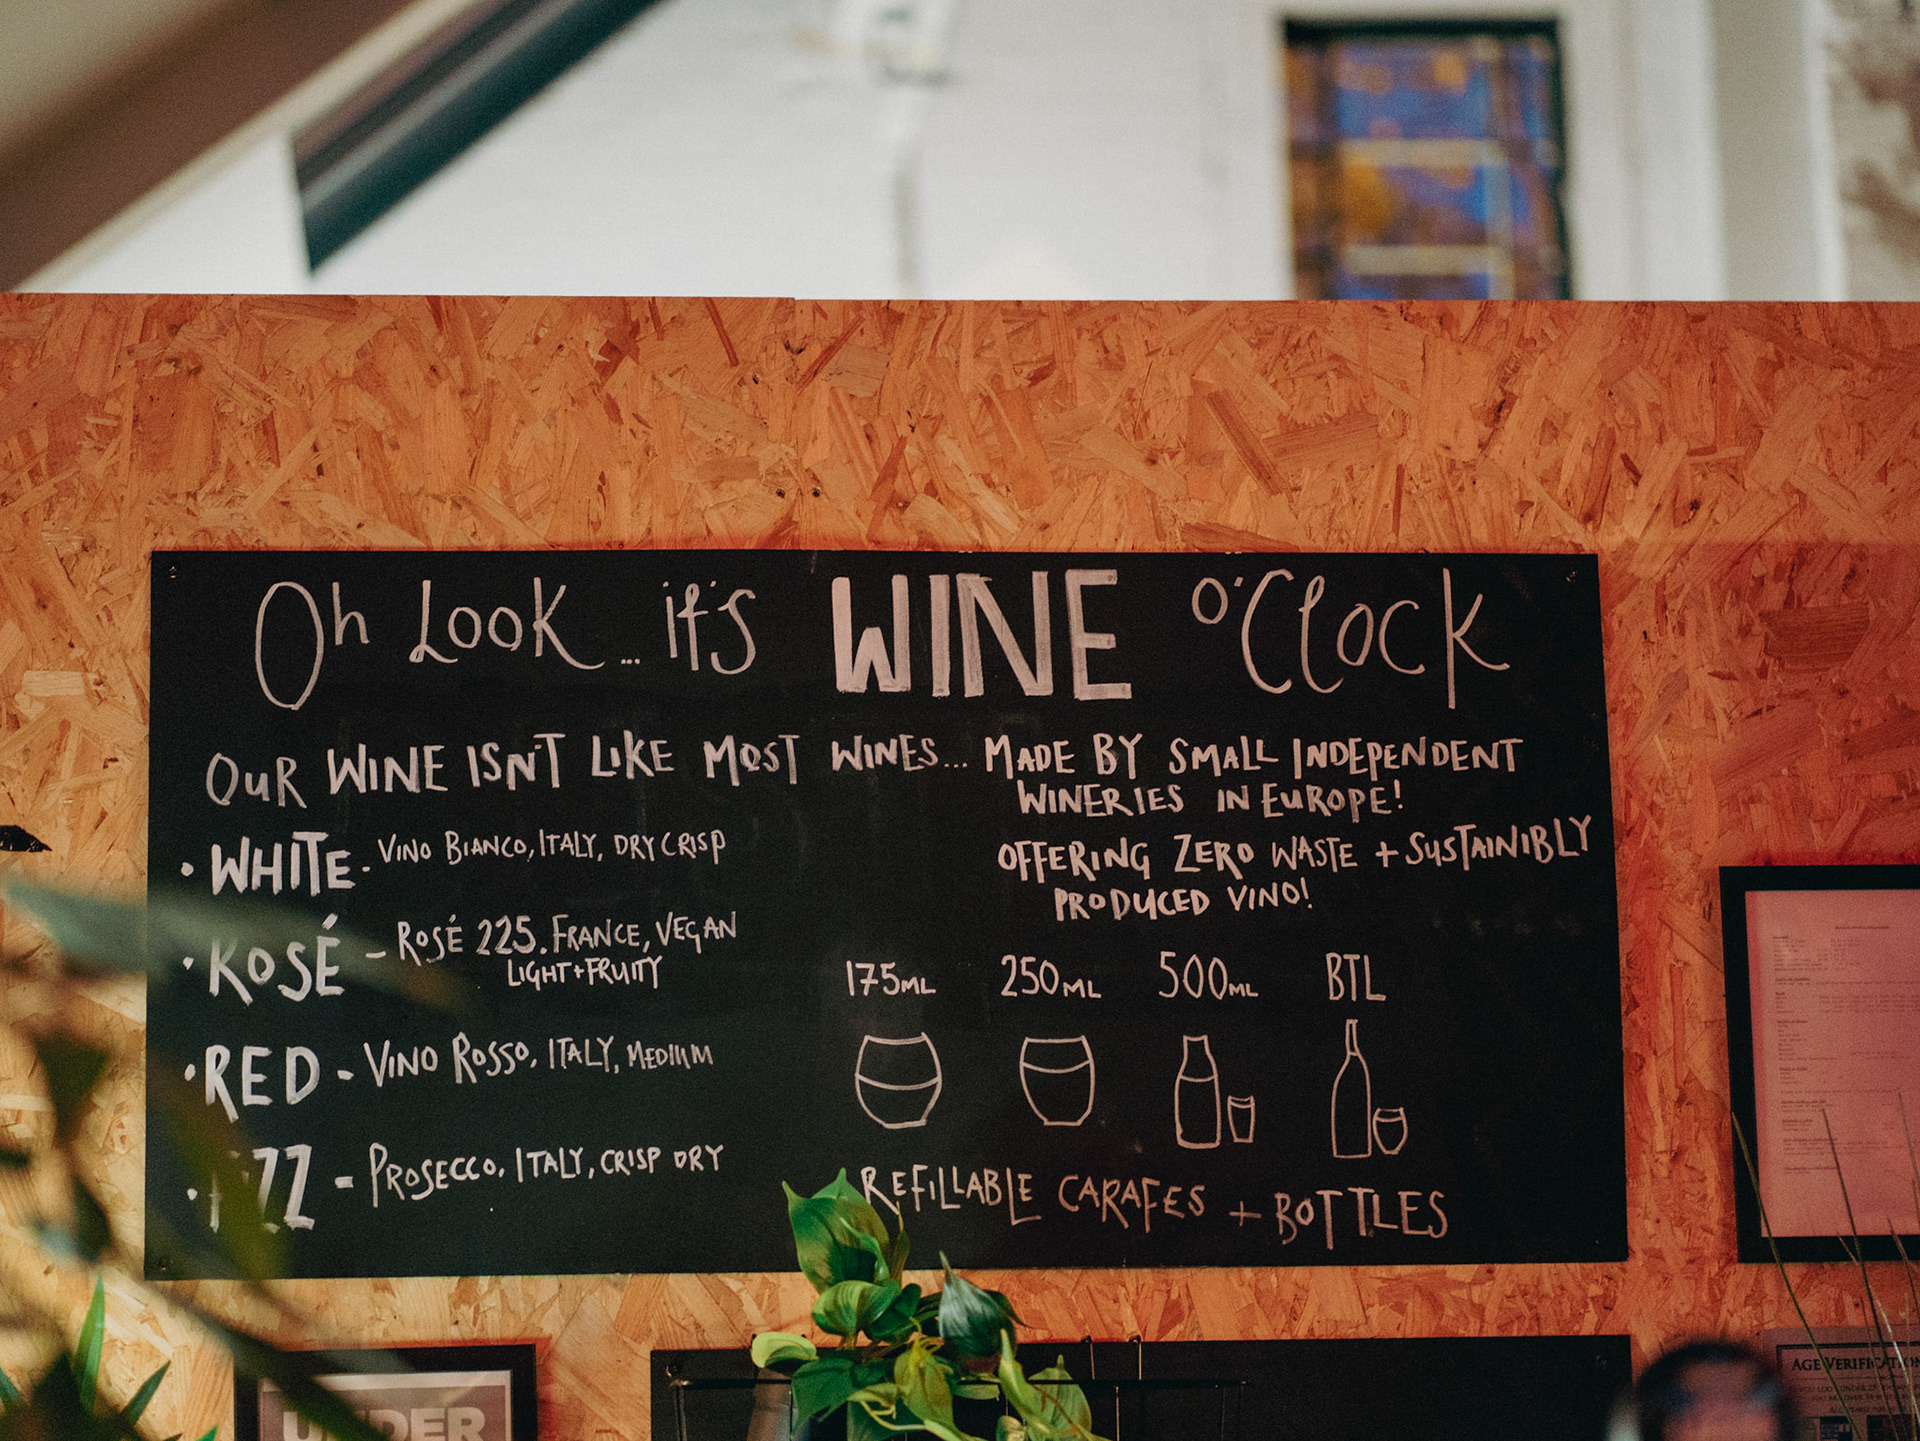 Oh Look... it's WINE o'Clock
OUR WINE ISN'T LIKE MOST WINES... MADE BY SMALL INDEPENDENT
WINERIES IN EUROPE!
OFFERING ZERO WASTE + SUSTAINIBLY
PRODUCED VINO!
• WHITE - VINO BIANCO, ITALY, DRY CRISP
• ROSÉ - ROSÉ 225. FRANCE, VEGAN
LIGHT + FRUITY
• RED - VINO ROSSO, ITALY, MEDIUM
• FIZZ - PROSECCO, ITALY, CRISP DRY
175ML 250ML 500ML BTL
REFILLABLE CARAFES + BOTTLES
UNDER
AGE VERIFICATION